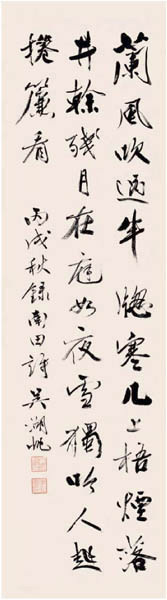 蘭風吹過半牕寒几上梧煙落
井榦殘月在庭如夜雪獨吟人起
捲簾看 丙戌秋錄南田詩 吳湖帆